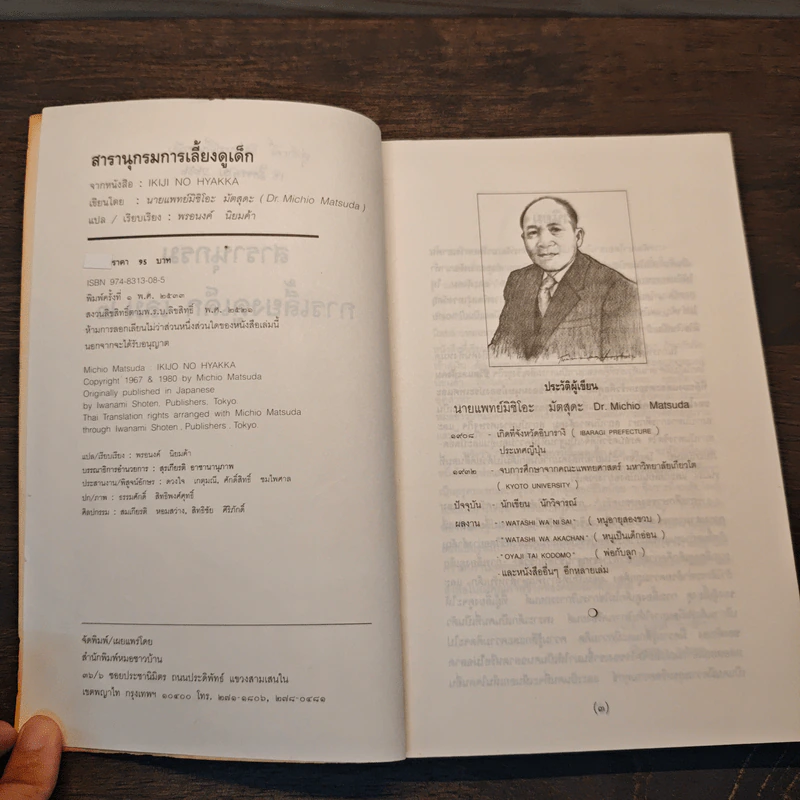 สารานุกรมการเลี้ยงดูเด็ก
จากหนังสือ : IKIJI NO HYAKKA
เขียนโดย : นายแพทย์มิชิโอะ มัตสุดะ ( Dr. Michio Matsuda )
แปล / เรียบเรียง : พรอนงค์ นิยมค้า
ราคา 95 บาท
ISBN 974-8313-08-5
พิมพ์ครั้งที่ ๑ พ.ศ.
สงวนลิขสิทธิ์ตามพ.ร.บ.ลิขสิทธิ์ พ.ศ. ๒๕๒๑
ห้ามการลอกเลียนไม่ว่าส่วนหนึ่งส่วนใดของหนังสือเล่มนี้
นอกจากจะได้รับอนุญาต
Michio Matsuda : IKIJO NO HYAKKA
Copyright 1967 & 1980 by Michio Matsuda
Originally published in Japanese
by Iwanami Shoten. Publishers. Tokyo.
Thai Translation rights arranged with Michio Matsuda
through Iwanami Shoten , Publishers , Tokyo.
แปล/เรียบเรียง : พรอนงค์ นิยมค้า
บรรณาธิการอำนวยการ : สุรเกียรติ อาชานานุภาพ
ประสานงาน/พิสูจน์อักษร : ดวงใจ เกตุมณี, ศักดิ์สิทธิ์ ชมไพศาล
ปก/ภาพ : ธรรมศักดิ์ สิทธิพงศ์ศุทธิ์
ศิลปกรรม : สมเกียรติ หอมสว่าง, สิทธิชัย ศิริภักดิ์
จัดพิมพ์/เผยแพร่โดย
สำนักพิมพ์หมอชาวบ้าน
๓๖/๖ ซอยประชานิมิตร ถนนประดิพัทธ์ แขวงสามเสนใน
เขตพญาไท กรุงเทพฯ ๑๐๔๐๐ โทร. ๒๗๑-๑๘๐๖, ๒๗๘-๐๔๘๑
ประวัติผู้เขียน
นายแพทย์มิชิโอะ มัตสุดะ Dr. Michio Matsuda
๑๙๐๘ - เกิดที่จังหวัดอิบารางิ ( IBARAGI PREFECTURE )
ประเทศญี่ปุ่น
๑๙๓๒ - จบการศึกษาจากคณะแพทยศาสตร์ มหาวิทยาลัยเกียวโต
( KYOTO UNIVERSITY )
ปัจจุบัน - นักเขียน นักวิจารณ์
ผลงาน - "WATASHI WA NI SAI" ( หนูอายุสองขวบ )
-"WATASHI WA AKACHAN" ( หนูเป็นเด็กอ่อน )
-"OYAJI TAI KODOMO" ( พ่อกับลูก )
- และหนังสืออื่นๆ อีกหลายเล่ม
(๓)